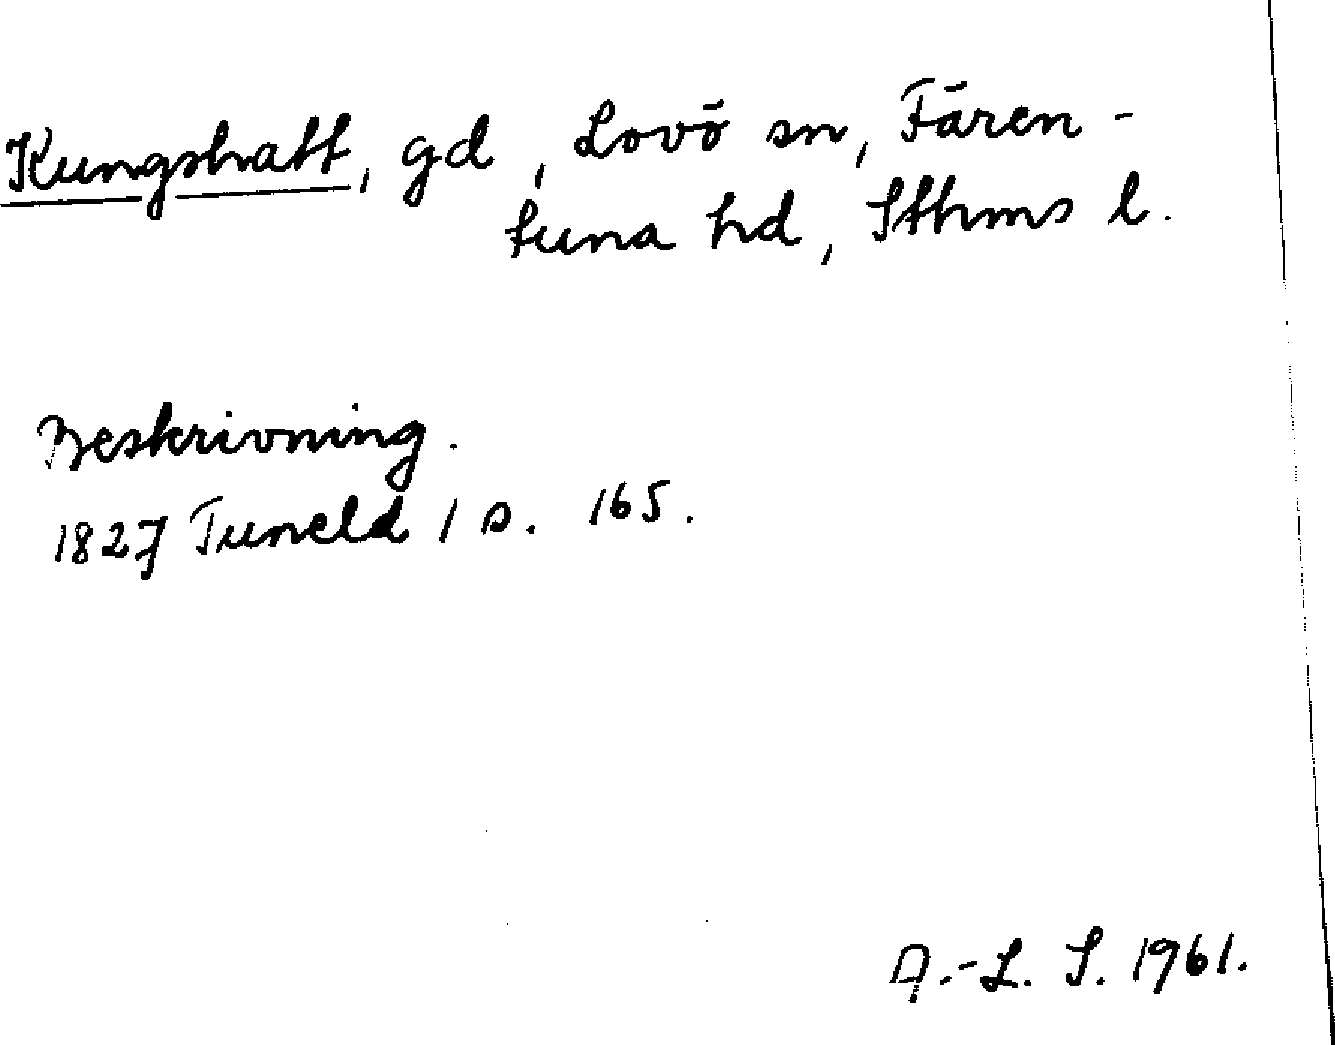 Kungshatt, gd, Lovö sn, Fären-
tuna hd, Sthms l.
Beskrivning.
1827 Tuneld 1 s. 165.
A.-L. S. 1961.